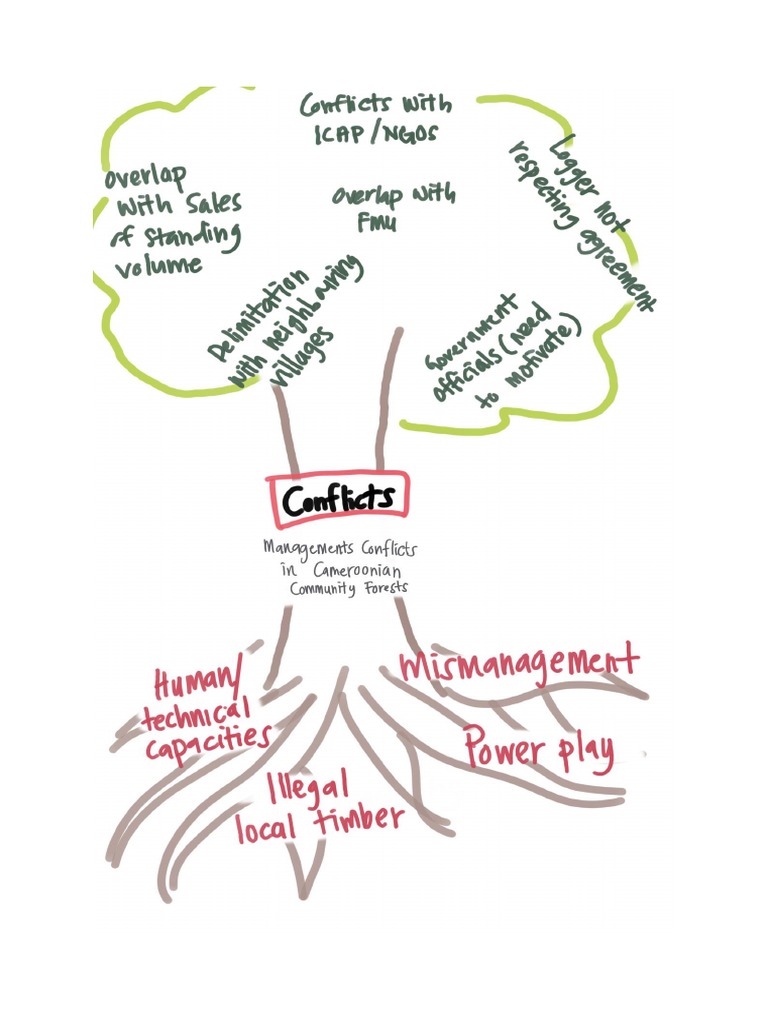 Conflicts with
ICAP/NGOS
Overlap
with Sales
of standing
volume
Overlap with
FMU
Logger not
respecting agreement
Delimitation
with neighbouring
villages
Government
officials (need
to motivate)
Conflicts
Managements Conflicts
in Cameroonian
Community Forests
Human/
technical
capacities
Mismanagement
Power play
Illegal
local timber